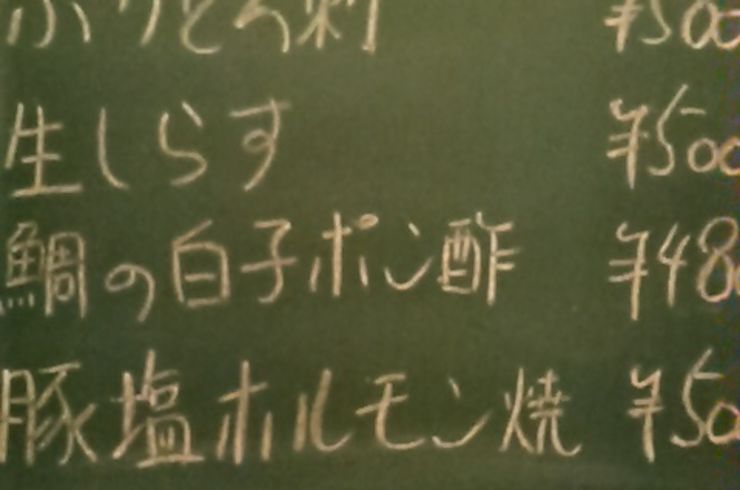 ぶりとろ刺 ¥500
生しらす ¥500
鯛の白子ポン酢 ¥480
豚塩ホルモン焼 ¥50